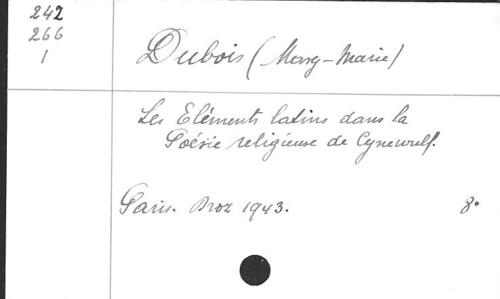 242
266
1
Dubois (Marg-Marie)
Les Eléments latins dans la
Poésie religieuse de Cynewulf.
Paris. Droz 1943. 8°